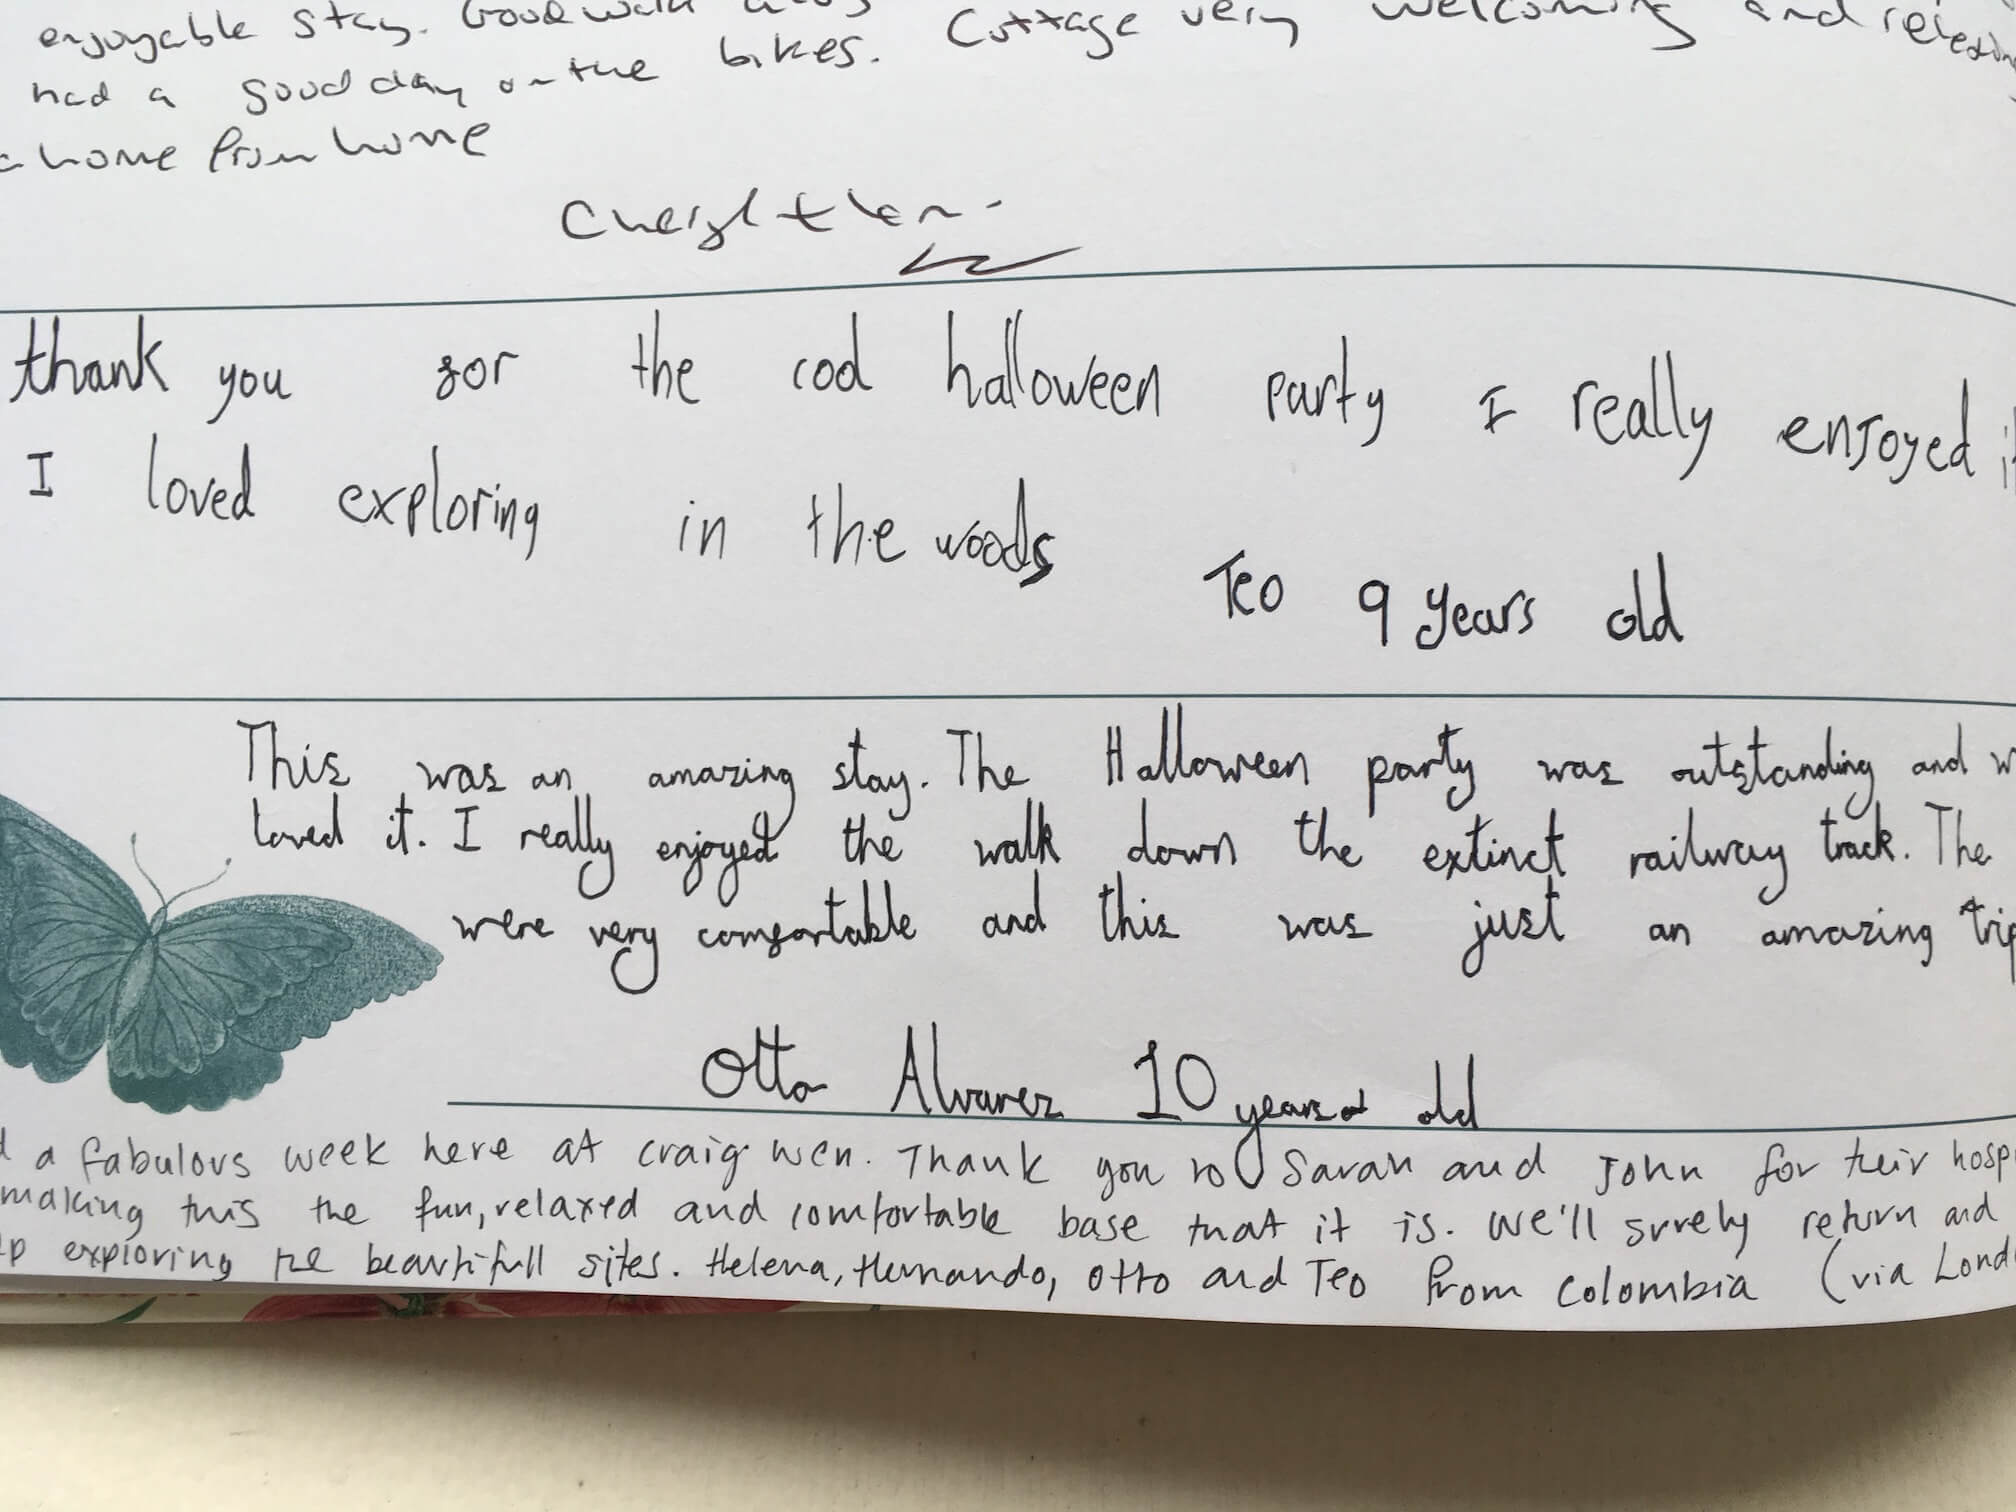 enjoyable stay. Good walk Cottage very welcoming and relexing
had a good day on the bikes.
a home from home
Cheryl + len.
thank you for the cod halloween party I really enjoyed it
I loved exploring in the woods
Teo 9 years old
This was an amazing stay. The Halloween party was outstanding and w
loved it. I really enjoyed the walk down the extinct railway track. The
were very comfortable and this was just an amazing trip
Otto Alvarez 10 years old
d a fabulous week here at craig wen. Thank you to Sarah and John for their hospi
making this the fun, relaxed and comfortable base that it is. We'll surely return and
ep exploring the beautifull sites. Helena, Hernando, Otto and Teo from Colombia (via Lond